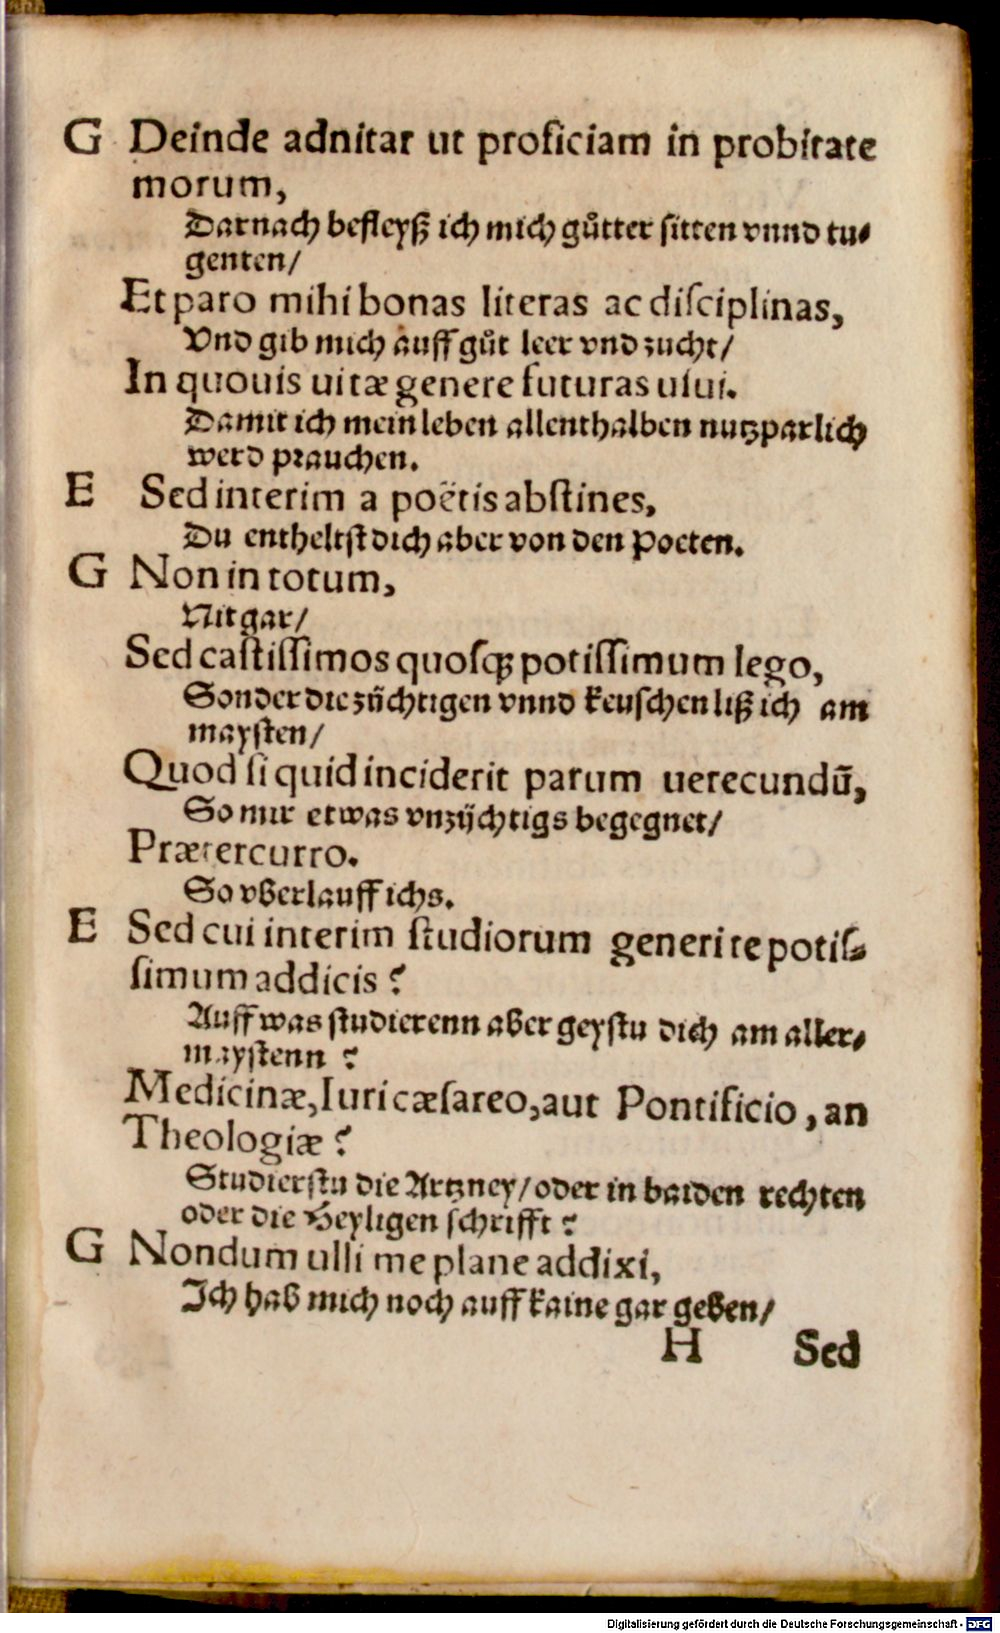 G Deinde adnitar ut proficiam in probitate
morum,
Darnach befleyß ich mich gůtter sitten vnnd tu⸗
genten/
Et paro mihi bonas literas ac disciplinas,
Vnd gib mich auff gůt leer vnd zucht/
In quouis uitæ genere futuras usui.
Damit ich mein leben allenthalben nutzparlich
werd prauchen.
E Sed interim a poëtis abstines,
Du entheltst dich aber von den Poeten.
G Non in totum,
Nit gar/
Sed castissimos quosqꝫ potissimum lego,
Sonder die zÿchtigen vnnd keuschen liß ich am
maysten/
Quod si quid inciderit parum uerecundū,
So mir etwas vnzÿchtigs begegnet/
Prætercurro.
So vberlauff ichs.
E Sed cui interim studiorum generi te potis⸗
simum addicis?
Auff was studierenn aber geystu dich am aller⸗
maystenn?
Medicinæ, Iuri cæsareo, aut Pontificio, an
Theologiæ?
Studierstu die Artzney/oder in baiden rechten
oder die Heyligen schrifft?
G Nondum ulli me plane addixi,
Ich hab mich noch auff kaine gar geben/
H Sed
Digitalisierung gefördert durch die Deutsche Forschungsgemeinschaft - DFG